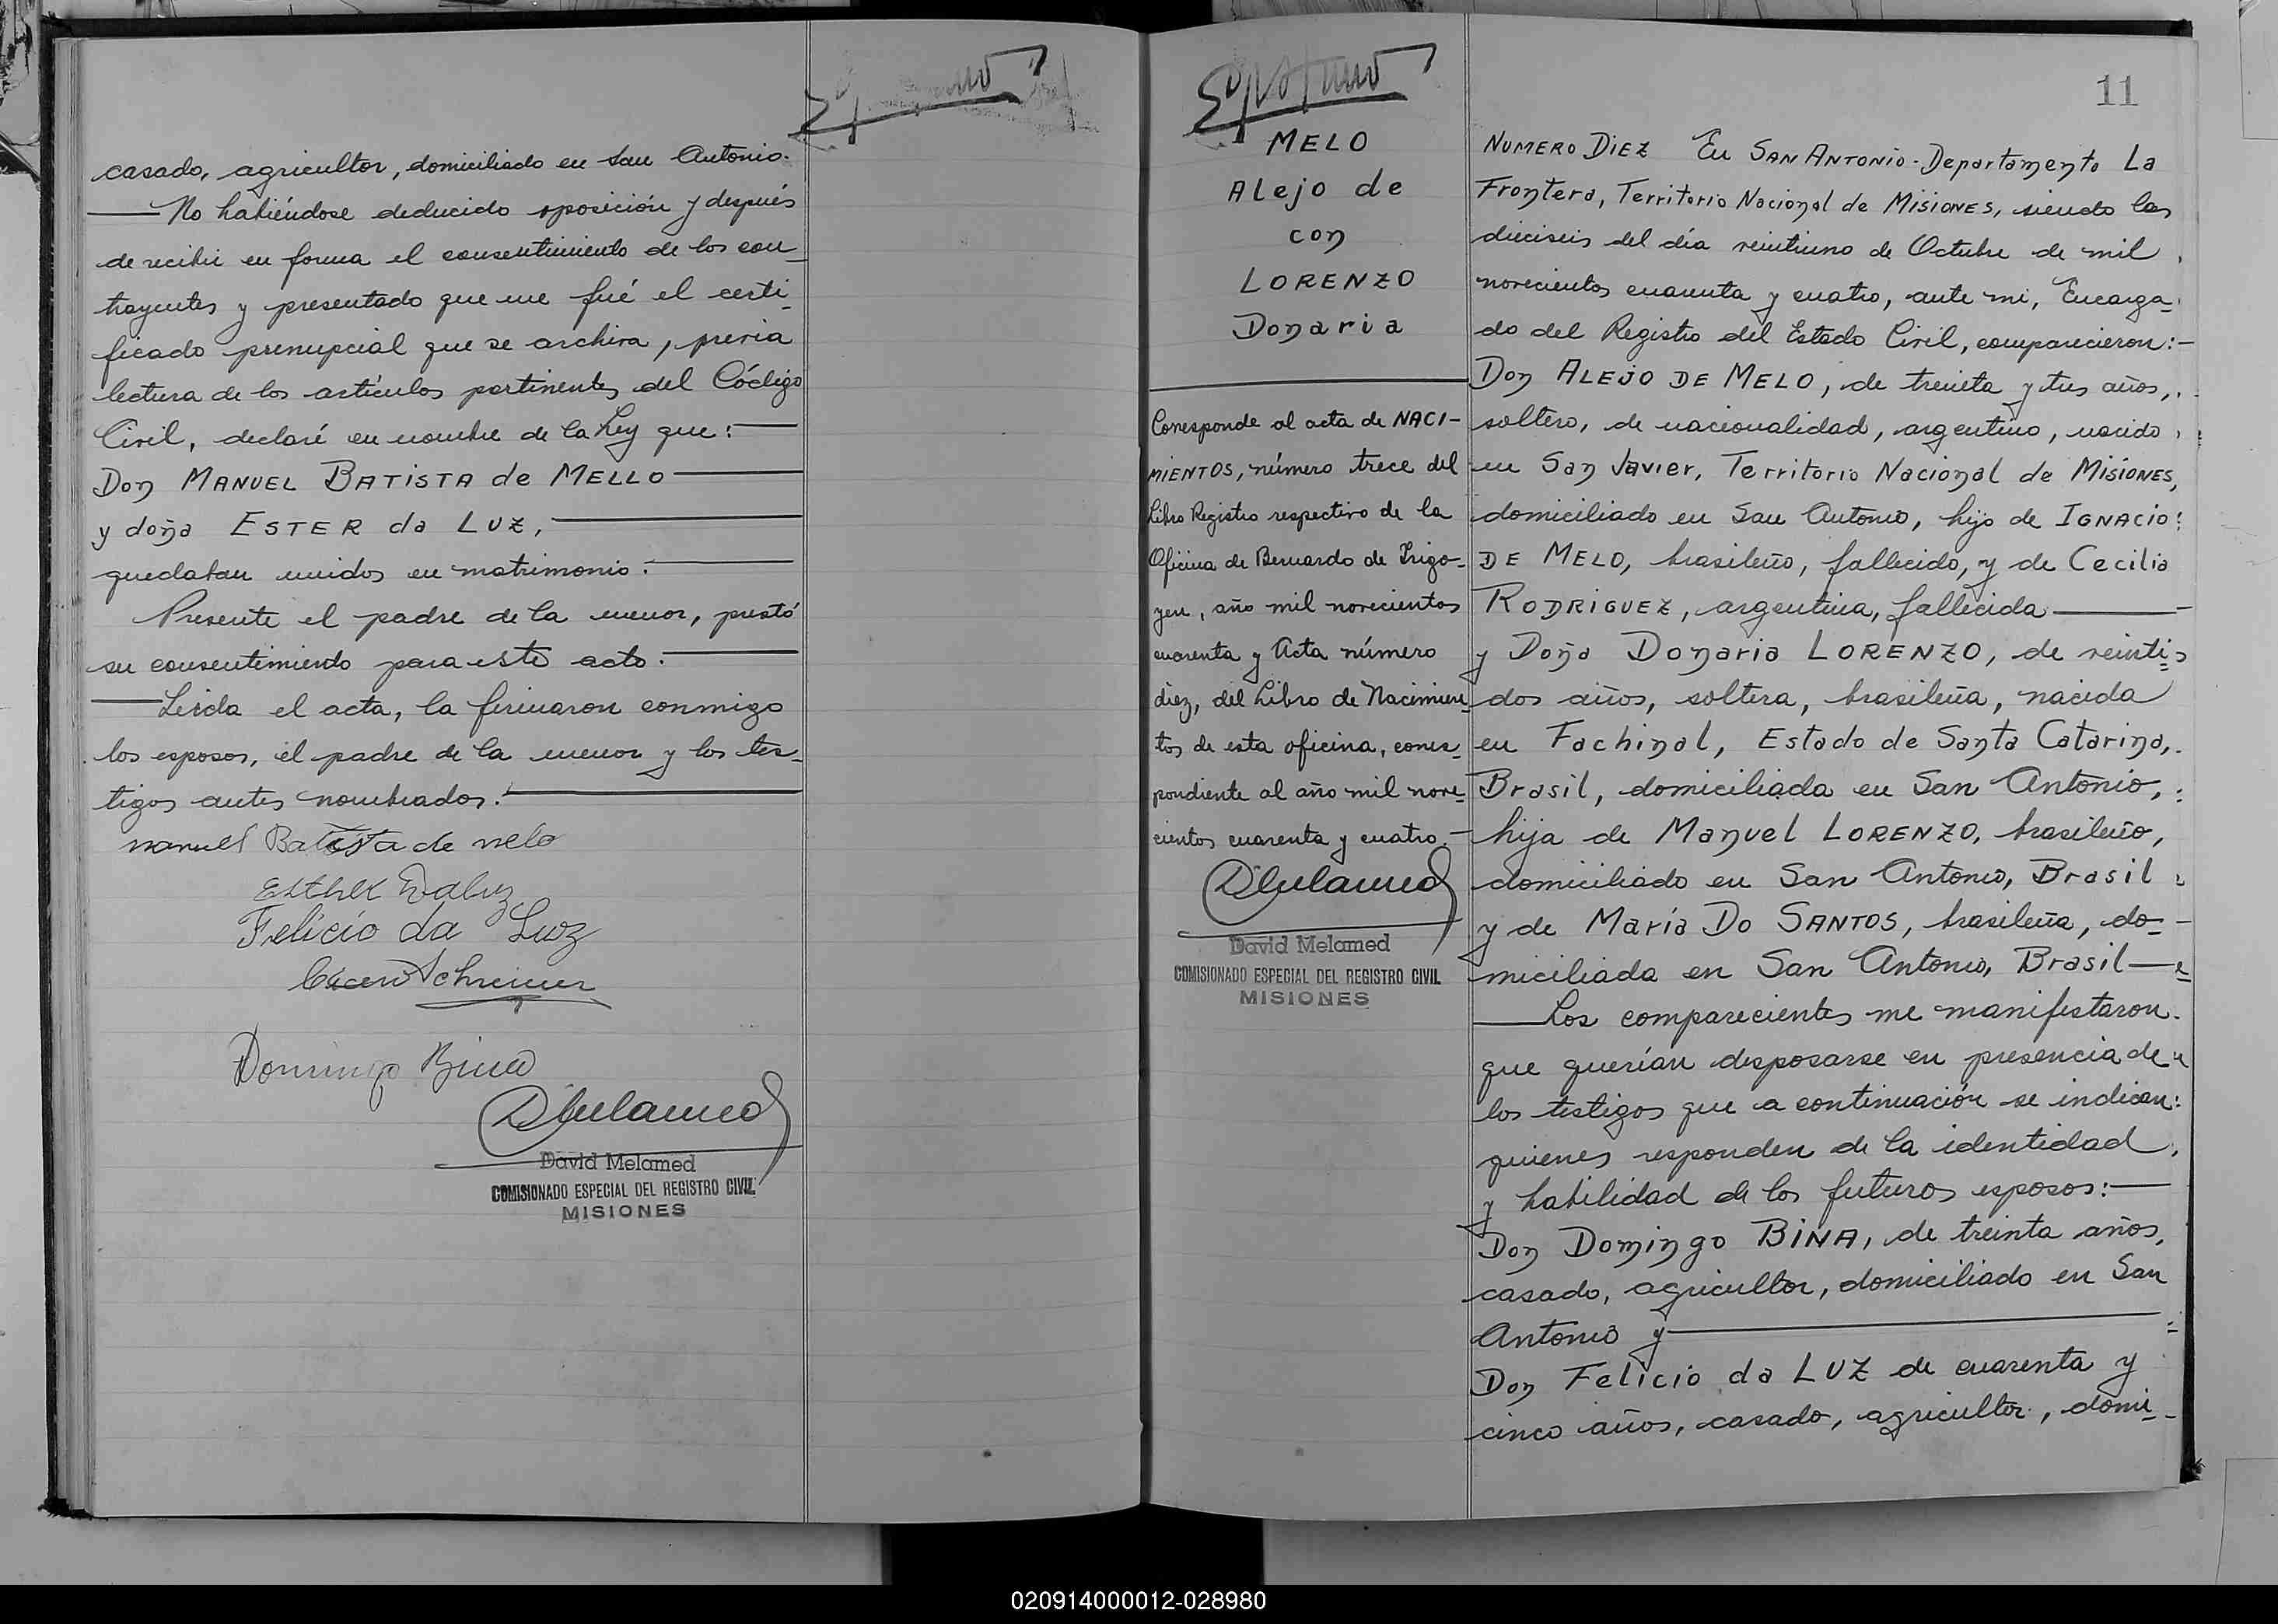 casado, agricultor, domiciliado en San Antonio.
No habiéndose deducido oposición y después
de recibir en forma el consentimiento de los con_
trayentes y presentado que me fué el certi_
ficado prenupcial que se archiva, previa
lectura de los artículos pertinentes del Código
Civil, declaré en nombre de la Ley que:
Don MANUEL BATISTA de MELLO
y doña ESTER da LUZ,
quedaban unidos en matrimonio.
Presente el padre de la menor, prestó
su consentimiento para este acto.
Leída el acta, la firmaron conmigo
los esposos, el padre de la menor y los tes_
tigos antes nombrados.
manuel Batista de melo
Esther Daluz
Felicio da Luz
Schreiner
Domingo Bina
DMelamed
David Melamed
COMISIONADO ESPECIAL DEL REGISTRO CIVIL
MISIONES
MELO
Alejo de
con
LORENZO
Donaria
Corresponde al acta de NACI-
MIENTOS, número trece del
Libro Registro respectivo de la
Oficina de Bernardo de Irigo-
yen, año mil novecientos
cuarenta y Acta número
diez, del Libro de Nacimien_
tos de esta oficina, corres_
pondiente al año mil nove_
cientos cuarenta y cuatro.-
DMelamed
David Melamed
COMISIONADO ESPECIAL DEL REGISTRO CIVIL
MISIONES
11
NUMERO DIEZ En SAN ANTONIO-Departamento La
Frontera, Territorio Nacional de MISIONES, siendo las
dieciseis del día veintiuno de Octubre de mil
novecientos cuarenta y cuatro, ante mi, Encarga_
do del Registro del Estado Civil, comparecieron:-
Don ALEJO DE MELO, de treinta y tres años,
soltero, de nacionalidad, argentino, nacido
en San Javier, Territorio Nacional de MISIONES,
domiciliado en San Antonio, hijo de IGNACIO
DE MELO, brasileño, fallecido, y de Cecilia
RODRIGUEZ, argentina, fallecida
y Doña Donaria LORENZO, de veinti_
dos años, soltera, brasileña, nacida
en Fachinal, Estado de Santa Catarina,
Brasil, domiciliada en San Antonio,
hija de Manuel LORENZO, brasileño,
domiciliado en San Antonio, Brasil
y de María Do SANTOS, brasileña, do_
miciliada en San Antonio, Brasil
Los comparecientes me manifestaron
que querían desposarse en presencia de
los testigos que a continuación se indican:
quienes responden de la identidad
y habilidad de los futuros esposos:
Don Domingo BINA, de treinta años,
casado, agricultor, domiciliado en San
Antonio y
Don Felicio da LUZ de cuarenta y
cinco años, casado, agricultor, domi_
020914000012-028980